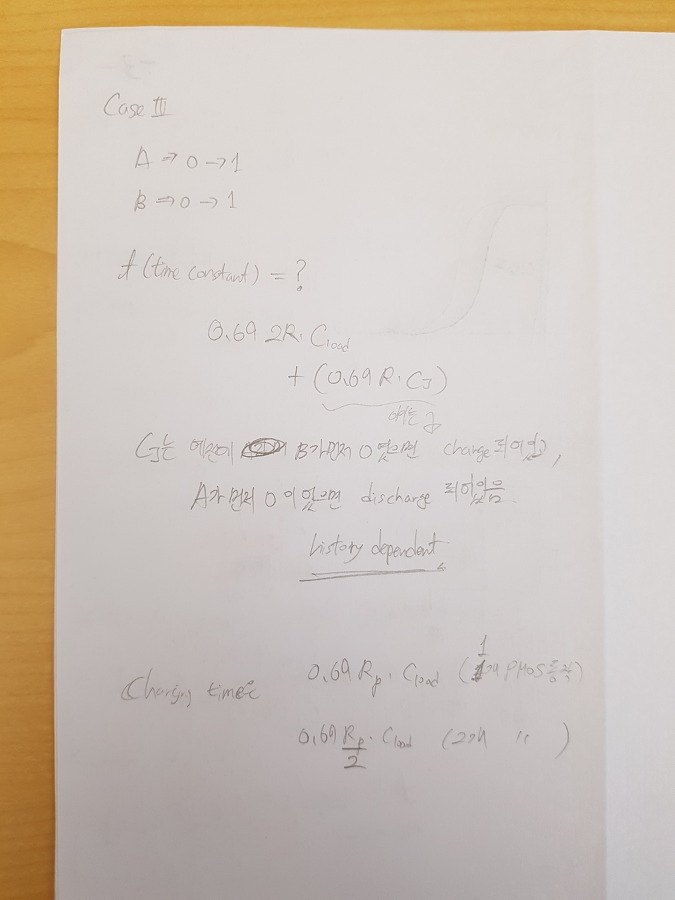 Case III
A ⇒ 0 → 1
B ⇒ 0 → 1
t (time constant) = ?
0.69 2R · Cload
+ (0.69 R · CJ)
CJ는 예전에 B가 먼저 0 였으면 charge 되어있고,
A가 먼저 0 이 있으면 discharge 되어있음.
history dependent
Charging time은 0.69 Rp · Cload (1개 PMOS 동작)
0.69 Rp/2 · Cload (2개 〃 )